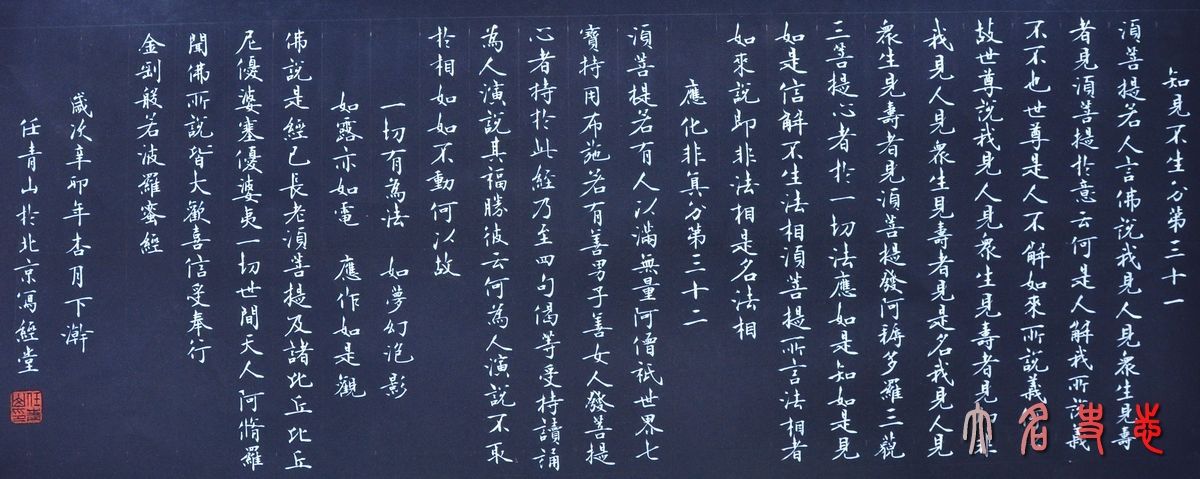 知見不生分第三十一
須菩提若人言佛說我見人見衆生見壽
者見須菩提於意云何是人解我所說義
不不也世尊是人不解如來所說義
故世尊說我見人見衆生見壽者見即非
我見人見衆生見壽者見是名我見人見
衆生見壽者見須菩提發阿耨多羅三藐
三菩提心者於一切法應如是知如是見
如是信解不生法相須菩提所言法相者
如來說即非法相是名法相
應化非真分第三十二
須菩提若有人以滿無量阿僧祇世界七
寶持用布施若有善男子善女人發菩提
心者持於此經乃至四句偈等受持讀誦
為人演說其福勝彼云何為人演說不取
於相如如不動何以故
一切有為法 如夢幻泡影
如露亦如電 應作如是觀
佛說是經已長老須菩提及諸比丘比丘
尼優婆塞優婆夷一切世間天人阿脩羅
聞佛所說皆大歡喜信受奉行
金剛般若波羅蜜經
歲次辛卯年杏月下澣
任青山於北京寫經堂